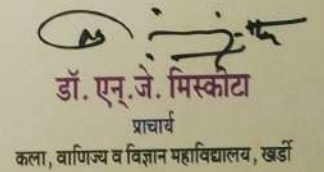 डॉ. एन्.जे. मिस्कीटा
प्राचार्य
कला, वाणिज्य व विज्ञान महाविद्यालय, खर्डी